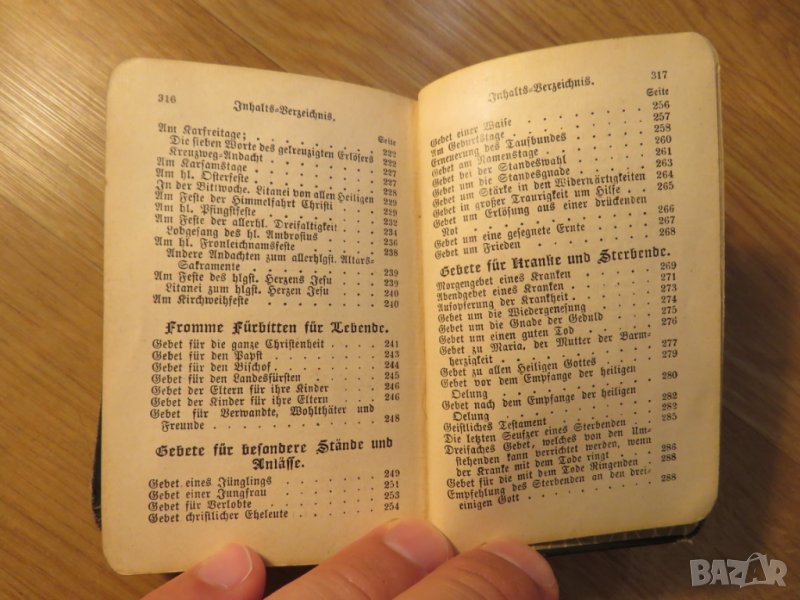 316
Inhalts-Verzeichnis.
Seite
Am Karfreitage;
Die sieben Worte des gekreuzigten Erlösers 222
Kreuzweg-Andacht 222
Am Karsamstage 227
Am hl. Osterfeste 227
In der Bittwoche. Litanei von allen Heiligen 228
Am Feste der Himmelfahrt Christi 229
Am hl. Pfingstfeste 232
Am Feste der allerhl. Dreifaltigkeit 232
Lobgesang des hl. Ambrosius 234
Am hl. Fronleichnamsfeste 236
Andere Andachten zum allerhlgst. Altars-
Sakramente 238
Am Feste des hlgst. Herzens Jesu 239
Litanei zum hlgst. Herzen Jesu 239
Am Kirchweihfeste 240
240
Fromme Fürbitten für Lebende.
Gebet für die ganze Christenheit 241
Gebet für den Papst 243
Gebet für den Bischof 244
Gebet für den Landesfürsten 245
Gebet der Eltern für ihre Kinder 246
Gebet der Kinder für ihre Eltern 246
Gebet für Verwandte, Wohlthäter und
Freunde 248
Gebete für besondere Stände und
Anlässe.
Gebet eines Jünglings 249
Gebet einer Jungfrau 251
Gebet für Verlobte 253
Gebet christlicher Eheleute 254
317
Inhalts-Verzeichnis.
Seite
Gebet einer Waise 256
Am Geburtstage 257
Erneuerung des Taufbundes 258
Gebet am Namenstage 260
Gebet bei der Standeswahl 261
Gebet um die Standesgnade 263
Gebet um Stärke in den Widerwärtigkeiten 264
Gebet in großer Traurigkeit um Hilfe 265
Gebet um Erlösung aus einer drückenden
Not 266
Gebet um eine gesegnete Ernte 267
Gebet um Frieden 268
Gebete für Kranke und Sterbende.
Morgengebet eines Kranken 269
Abendgebet eines Kranken 271
Aufopferung der Krankheit 273
Gebet um die Wiedergenesung 274
Gebet um die Gnade der Geduld 275
Gebet um einen guten Tod 276
Gebet zu Maria, der Mutter der Barm-
herzigkeit 277
Gebet zu allen Heiligen Gottes 279
Gebet vor dem Empfange der heiligen
Oelung 280
Gebet nach dem Empfange der heiligen
Oelung 282
Geistliches Testament 283
Die letzten Seufzer eines Sterbenden 285
Dreifaches Gebet, welches von den Um-
stehenden kann verrichtet werden, wenn
der Kranke mit dem Tode ringt 286
Gebet für die mit dem Tode Ringenden 288
Empfehlung des Sterbenden an den drei-
einigen Gott 288
BAZAR